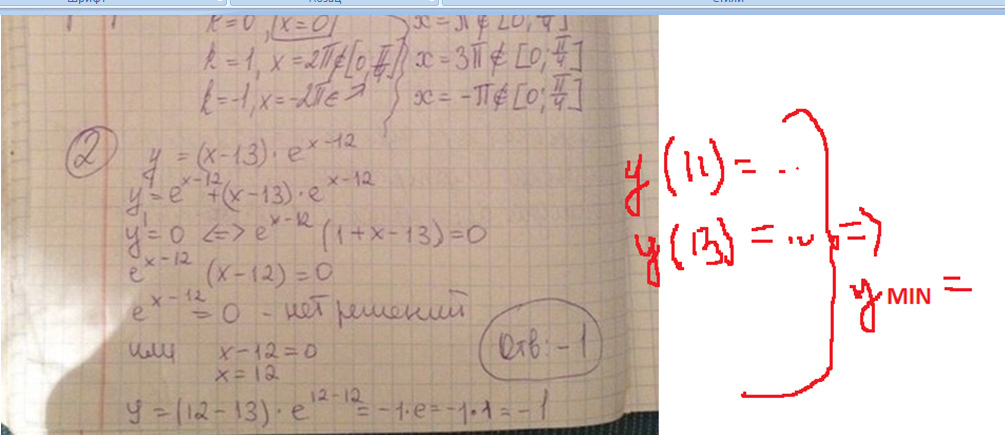 Шрифт Абзац Стили
k=0, x=0 } x=π∉[0; π/4]
k=1, x=2π∉[0; π/4] } x=3π∉[0; π/4]
k=-1, x=-2π∈ } x=-π∉[0; π/4]
2 y=(x-13)·e^(x-12)
y'=e^(x-12)+(x-13)·e^(x-12)
y'=0 <=> e^(x-12) (1+x-13)=0
e^(x-12) (x-12)=0
e^(x-12)=0 - нет решений
или x-12=0
x=12
Отв: -1
y=(12-13)·e^(12-12)=-1·e=-1·1=-1
y(11)=..
y(13)=... =>
y MIN =